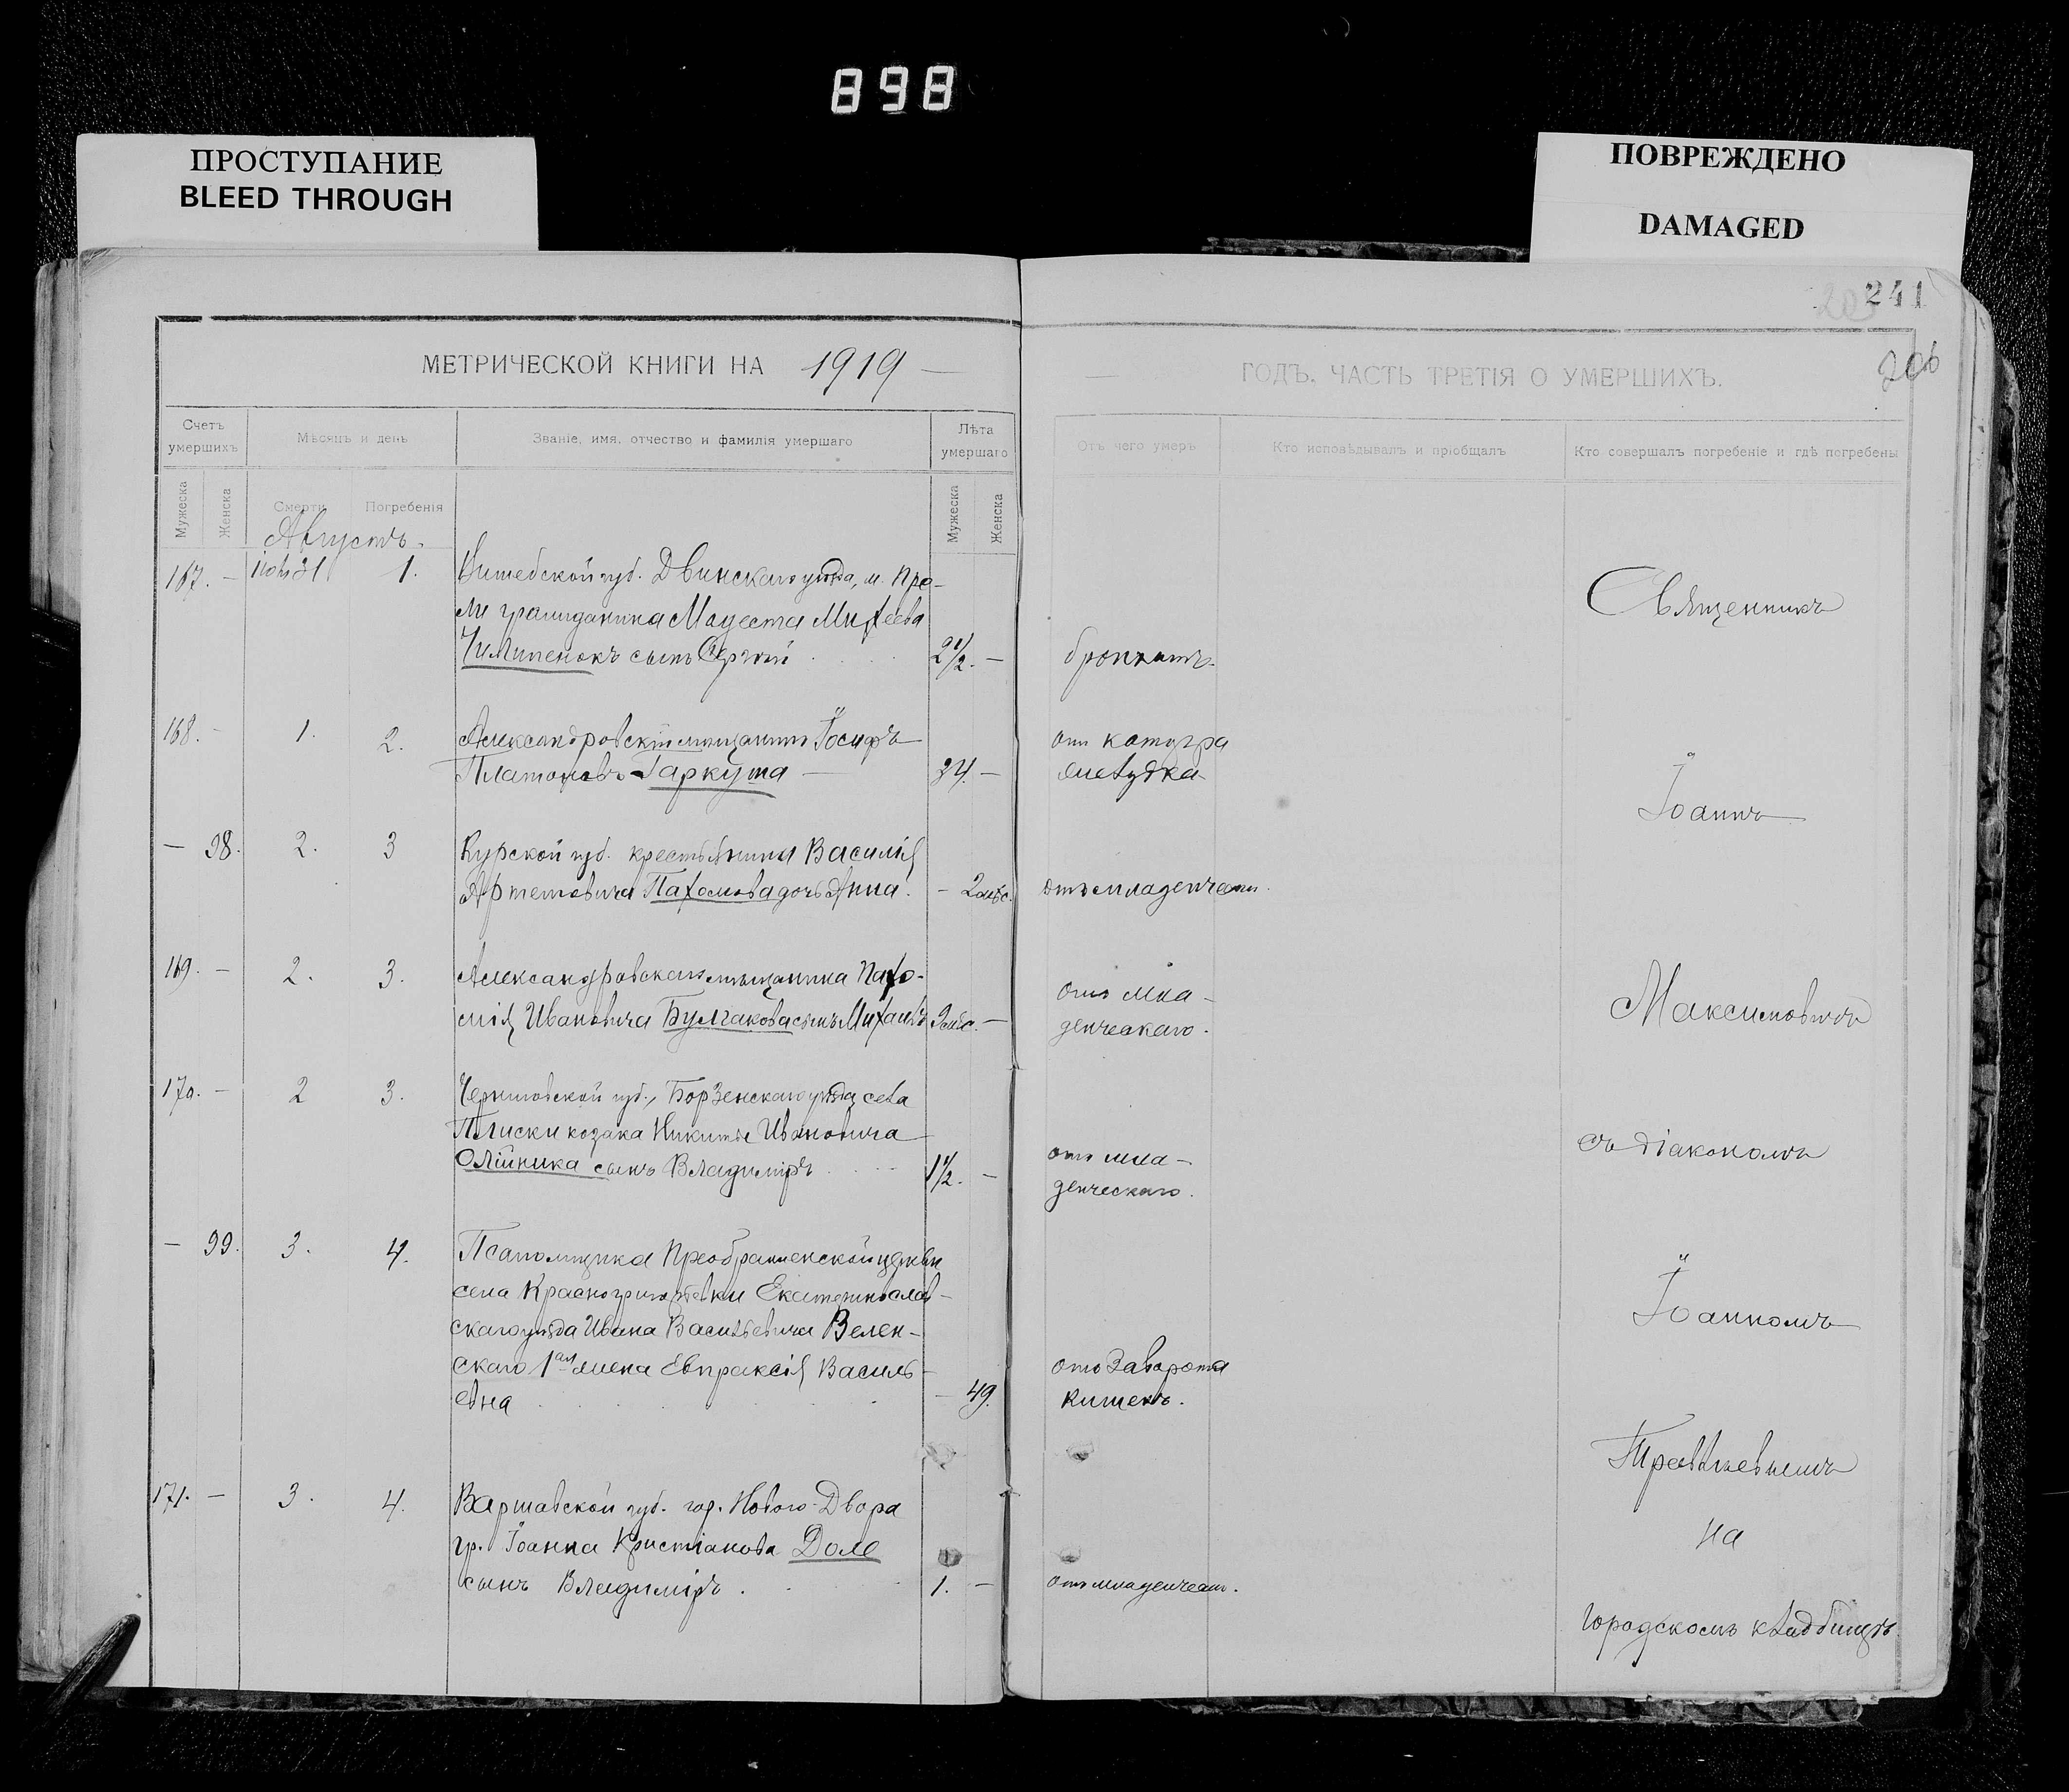 898
ПРОСТУПАНИЕ
BLEED THROUGH
ПОВРЕЖДЕНО
DAMAGED
241
206
МЕТРИЧЕСКОЙ КНИГИ НА 1919
ГОДЪ. ЧАСТЬ ТРЕТІЯ О УМЕРШИХЪ.
Счетъ умершихъ
Мѣсяцъ и день
Званіе, имя, отчество и фамилія умершаго
Лѣта умершаго
Отъ чего умеръ
Кто исповѣдывалъ и пріобщалъ
Кто совершалъ погребеніе и гдѣ погребены
Мужеска
Женска
Смерти
Погребенія
Мужеска
Женска
Августъ.
167. – 31 1. Витебской губ. Двинскаго уѣзда, м. Пре-
ли гражданина Модеста Михеева
сынъ Сергѣй 2 1/2. – бронхитъ.
168. – 1. 2. Александровскій мѣщанинъ Іосифъ
Платоновъ Гаркуша 34. – отъ катарра
желудка
– 98. 2. 3 Курской губ. крестьянина Василія
Артемовича Пахомова дочь Анна. – 2 мѣс. отъ младенческ.
169. – 2. 3. Александровскаго мѣщанина Пахо-
мія Ивановича Булгакова сынъ Михаилъ 9 мѣс. – отъ мла-
денческаго.
170. – 2 3. Черниговской губ., Борзенскаго уѣзда села
Плиски козака Никиты Ивановича
Олійника сынъ Владиміръ 1 1/2. – отъ мла-
денческаго.
– 99. 3. 4. Псаломщика Преображенской церкви
села Красногригорьевки Екатеринослав-
скаго уѣзда Ивана Васильевича Велен-
скаго 1ая жена Евпраксія Василь-
евна – 49. отъ заворота
кишекъ.
171. – 3. 4. Варшавской губ. гор. Новаго-Двора
гр. Іоанна Кристіанова Доле
сынъ Владиміръ. 1. – отъ младенческ.
Священникъ
Іоаннъ
Максимовичъ
съ діакономъ
Іоанномъ
на
городскомъ кладбищѣ.